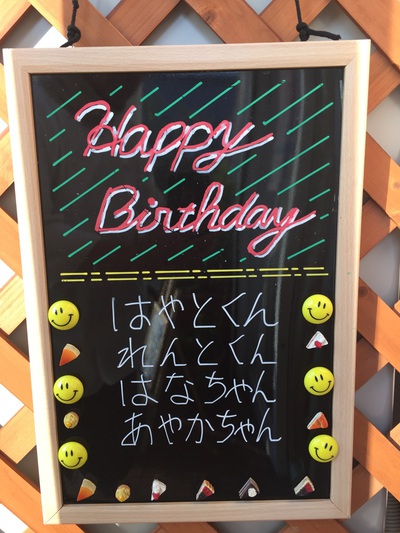 Happy
Birthday
はやとくん
れんとくん
はなちゃん
あやかちゃん